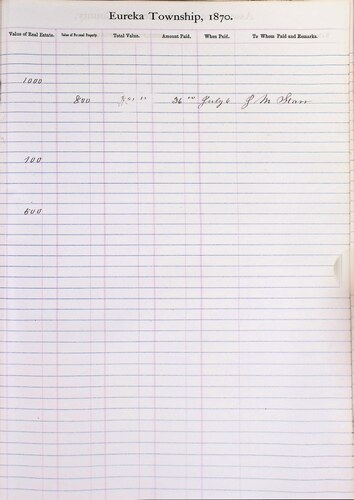 Eureka Township, 1870.
Value of Real Estate. Value of Personal Property. Total Value. Amount Paid. When Paid. To Whom Paid and Remarks.
1000
800 36 00 July 6 J M Starr
100
500